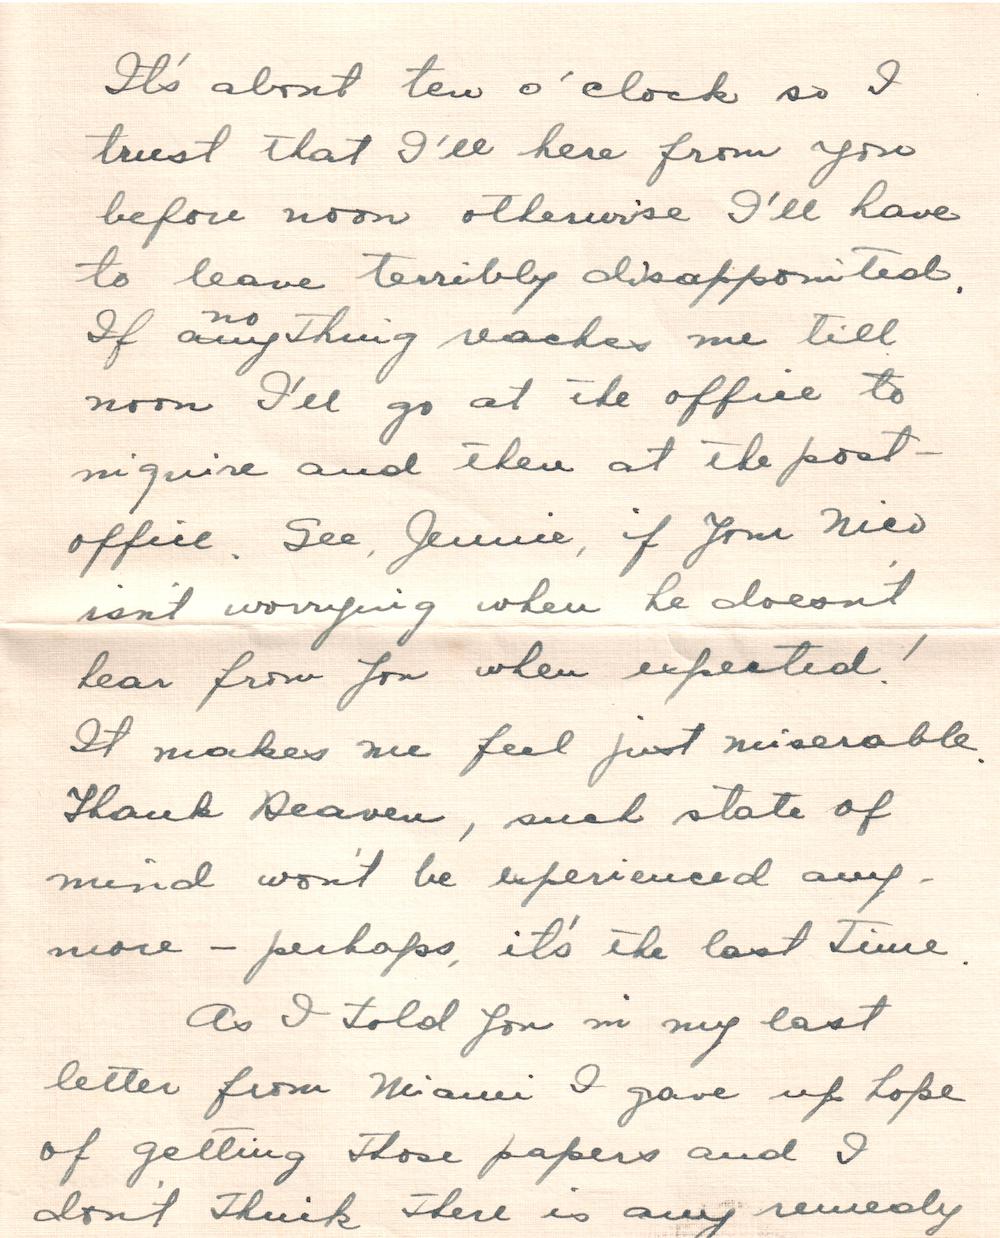 It's about ten o'clock so I
trust that I'll here from you
before noon otherwise I'll have
to leave terribly disappointed.
no
If anything reaches me till
noon I'll go at the office to
inquire and then at the post-
office. See, Jennie, if Your Nico
isn't worrying when he doesn't
hear from You when expected!
It makes me feel just miserable.
Thank Heaven, such state of
mind won't be experienced any-
more – perhaps, it's the last time.
As I told You in my last
letter from Miami I gave up hope
of getting those papers and I
don't think there is any remedy